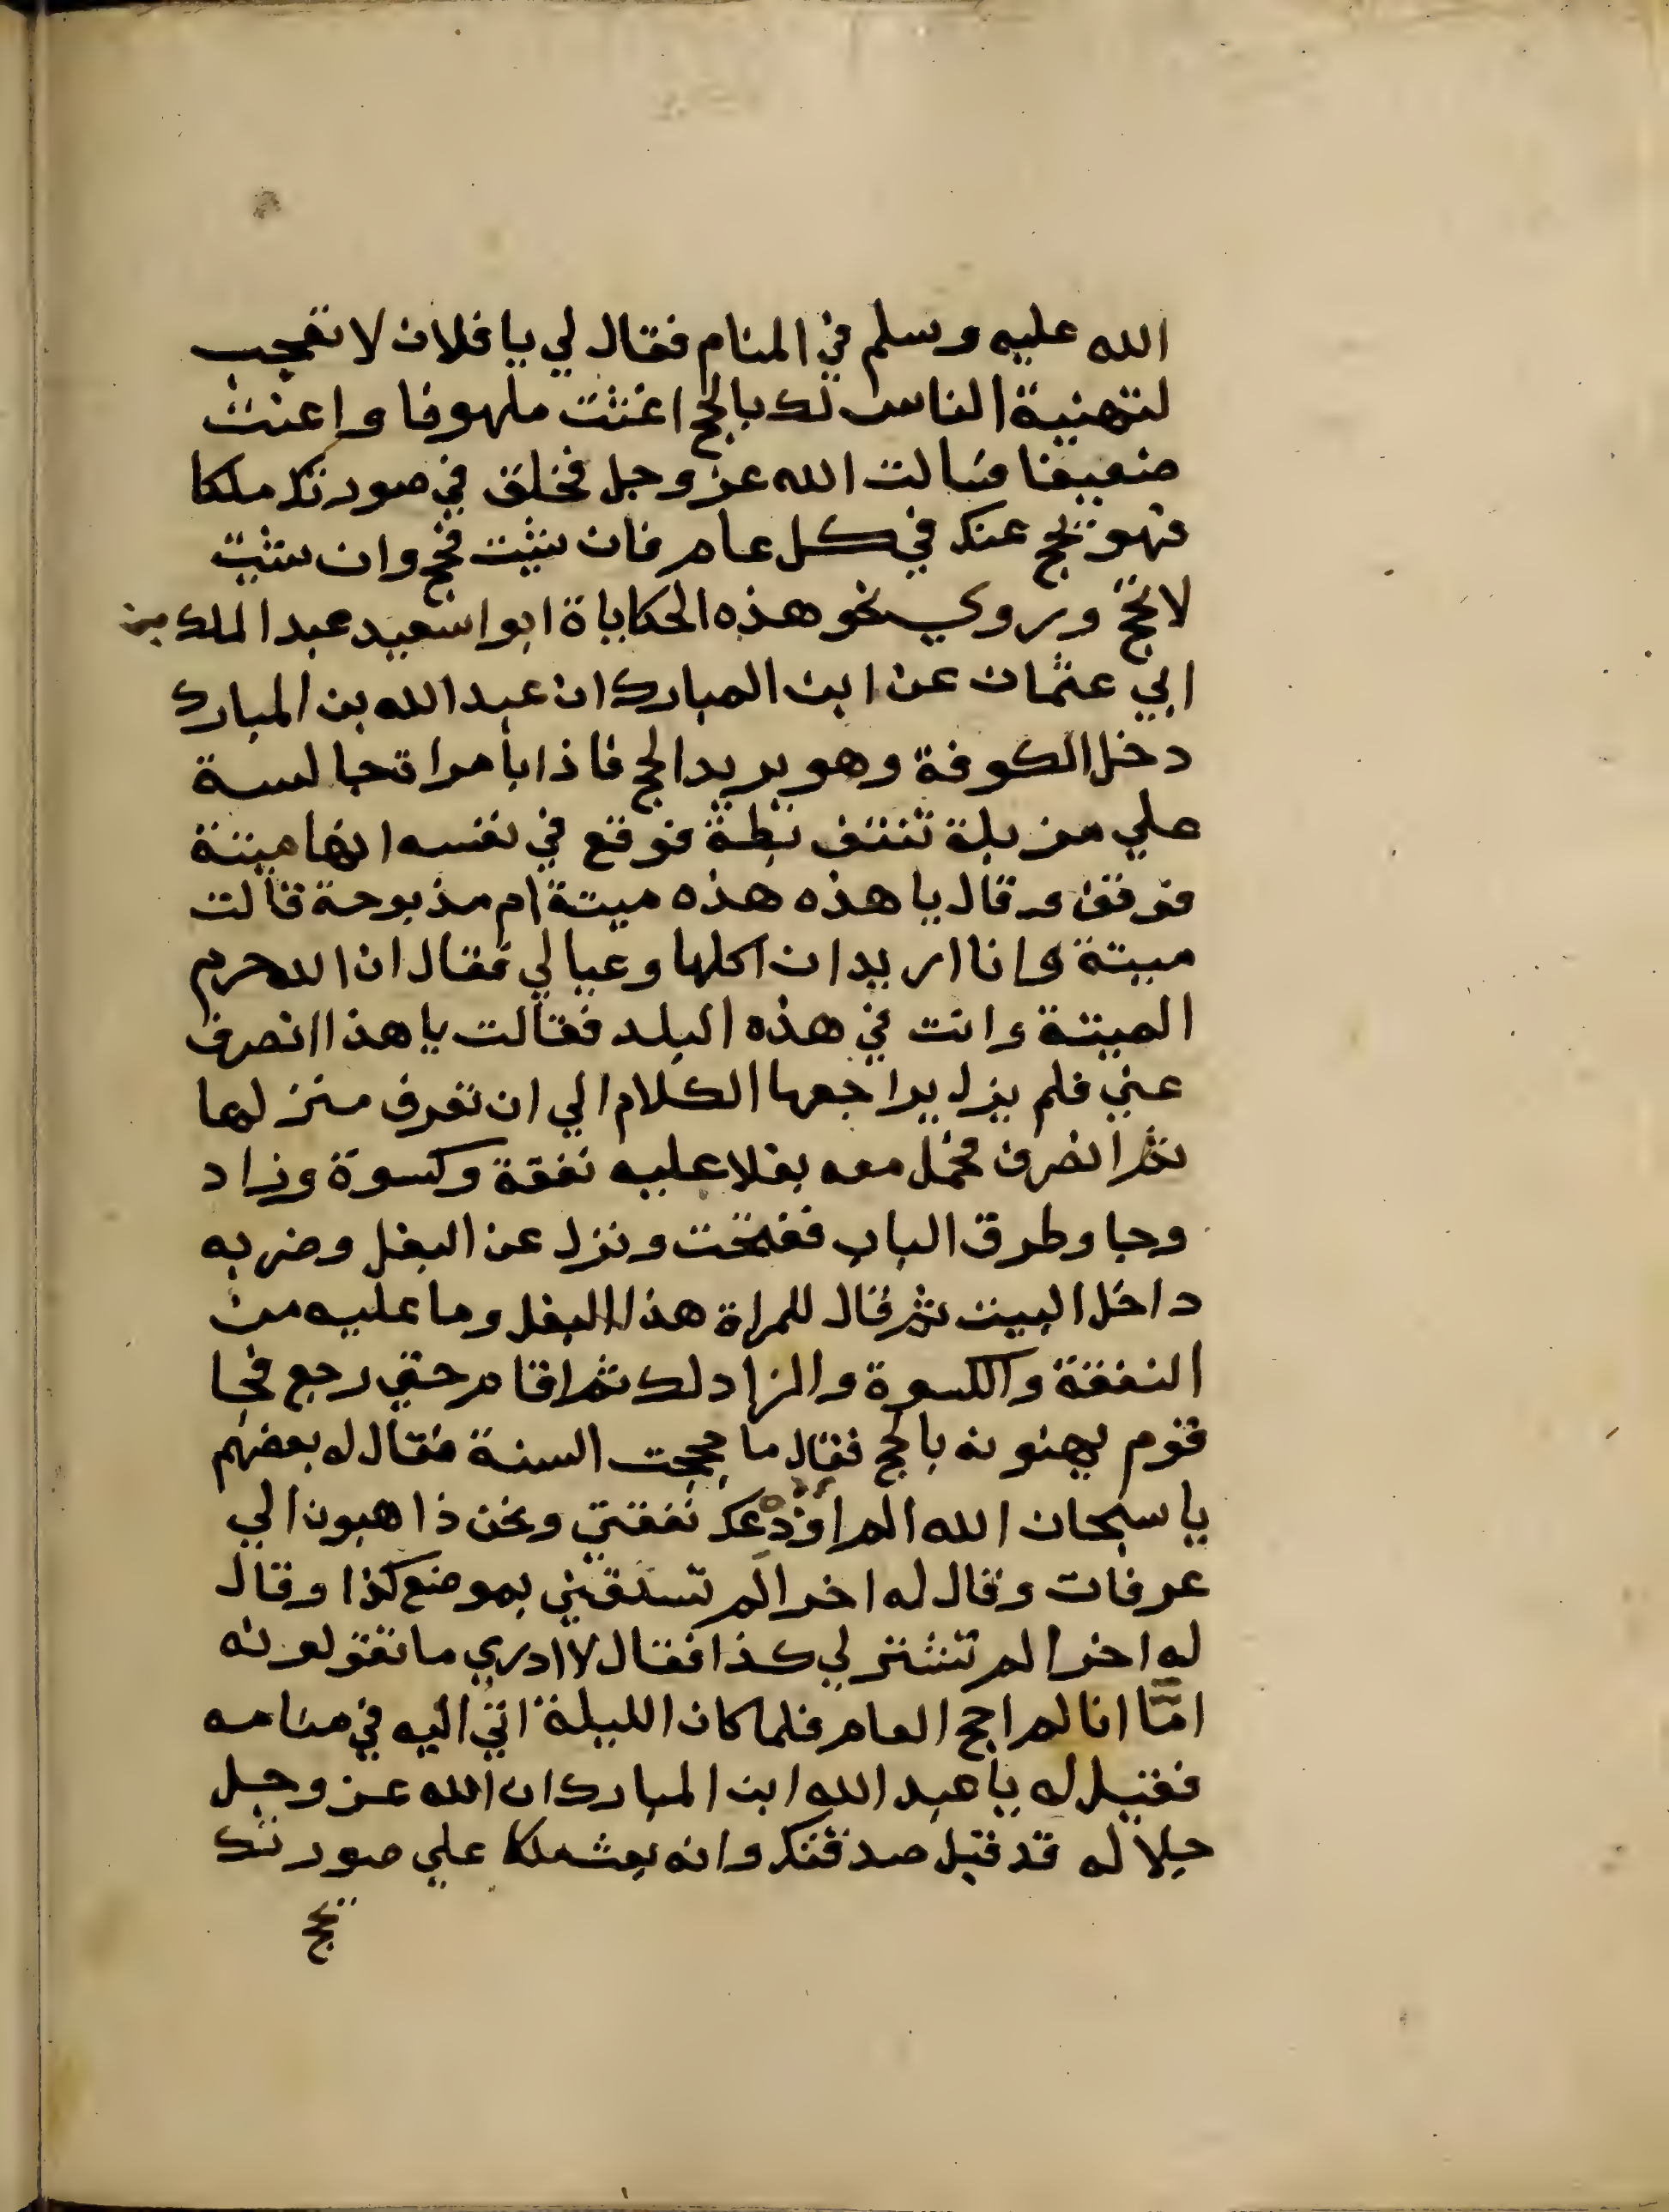 الله عليه وسلم في المنام فقال لي يا فلان لا تعجب
لتهنية الناس لك بالحج اغثت ملهوفا واعنت
ضعيفا فسالت الله عز وجل فخلق في صورتك ملكا
فهو يحج عنك في كل عام فان شيت فحج وان شيت
لا تحج وروي نحو هذه الحكاياة ابوا سعيد عبد الملك بن
ابي عثمان عن ابن المبارك ان عبد الله بن المبارك
دخل الكوفة وهو يريد الحج فاذا بامراة جالسة
علي مزبلة تنتف بطة فوقع في نفسه انها ميتة
فوقف وقال يا هذه هذه ميتة ام مذبوحة قالت
ميتة وانا اريد ان اكلها وعيالي فقال ان الله حرم
الميتة وانت في هذه البلد فقالت يا هذا انصرف
عني فلم يزل يراجعها الكلام الي ان تعرف منزلها
ثم انصرف فحمل معه بغلا عليه نفقة وكسوة وزاد
وجا وطرق الباب ففتحت ونزل عن البغل وضربه
داخل البيت ثم قال للمراة هذا البغل وما عليه من
النفقة والكسوة والزاد لك ثم اقام حتي رجع فجا
قوم يهنونه بالحج فقال ما حججت السنة فقال له بعضهم
يا سبحان الله الم اودعك نفقتي ونحن ذاهبون الي
عرفات وقال له اخر الم تسقني بموضع كذا وقال
له اخر الم تشتر لي كذا فقال لا ادري ما تقولونه
امّا انا لم احج العام فلما كان الليلة اتي اليه في منامه
فقيل له يا عبد الله ابن المبارك ان الله عز وجل
جلاله قد قبل صدقتك وانه بعث ملكا علي صورتك
يحج